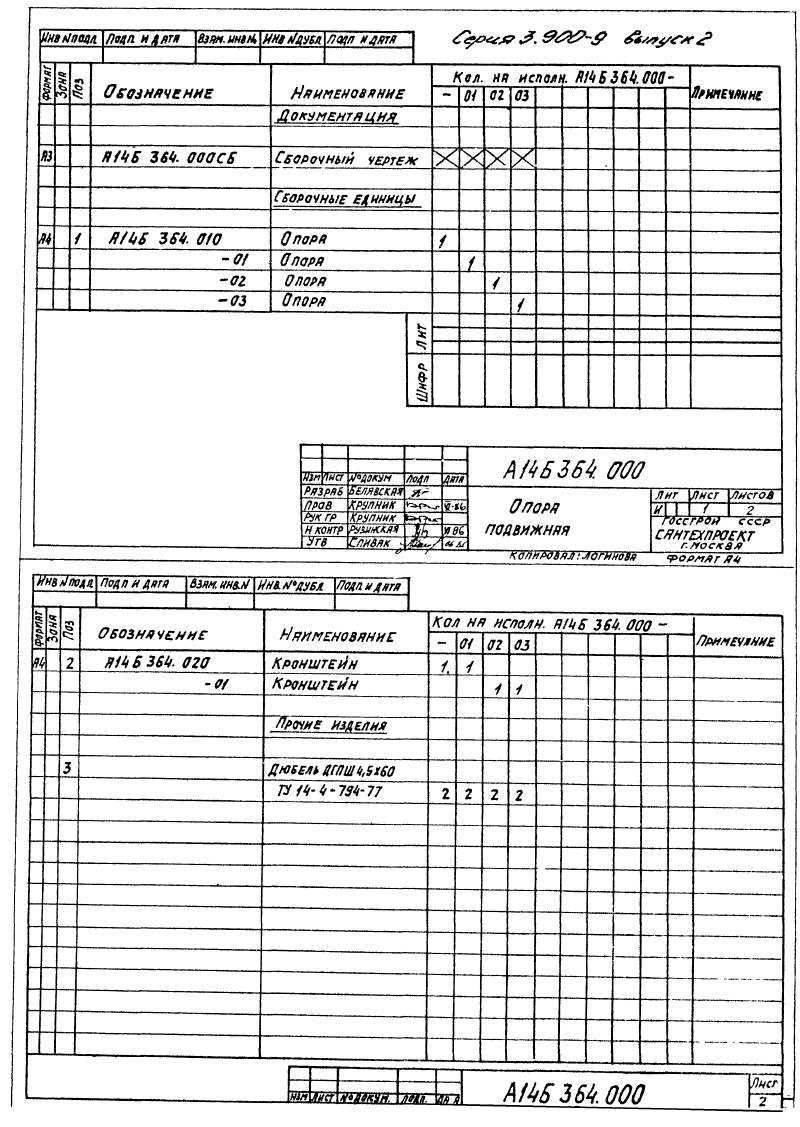 Серия 3.900-9 выпуск 2
Инв N подл Подп. и дата Взам. инв N Инв N дубл Подп и дата
Формат Зона Поз Обозначение Наименование Кол. на исполн. А14Б 364.000- Примечание
- 01 02 03
Документация
А3 А14Б 364.000СБ Сборочный чертеж
Сборочные единицы
А4 1 А14Б 364.010 Опора 1
-01 Опора 1
-02 Опора 1
-03 Опора 1
Лит
Шифр
Изм Лист № докум Подп Дата
Разраб Белявская
Пров Крупник
Рук гр Крупник
Н контр Рузинская
Утв Спивак
А14Б 364.000
Опора
подвижная
Лит Лист Листов
И 1 2
Госстрой СССР
Сантехпроект
г. Москва
Копировал: Логинова Формат А4
Инв N подл Подп и дата Взам. инв. N Инв. N° дубл Подп и дата
Формат Зона Поз Обозначение Наименование Кол на исполн. А14Б 364.000 - Примечание
- 01 02 03
А4 2 А14Б 364.020 Кронштейн 1. 1
-01 Кронштейн 1 1
Прочие изделия
3 Дюбель ДГПШ 4,5х60
ТУ 14-4-794-77 2 2 2 2
Изм Лист № докум. Подп.
А14Б 364.000
Лист
2